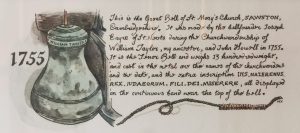 This is the Great Bell of St Mary's Church,
Cambridgeshire. It was made by the bellfounder Joseph
Eayre of St Neots during the Churchwardenship of
William Taylor, my ancestor, and John Howell in 1755.
It is the Tenor Bell and weighs 13 hundredweight,
and cast in the metal are the names of the churchwardens
and the date, and the notice inscription IHS. NAZARENUS
REX. JUDAEORUM. FILI. DEI. MISERERE. all displayed
on the continuous band near the top of the bell.
1755